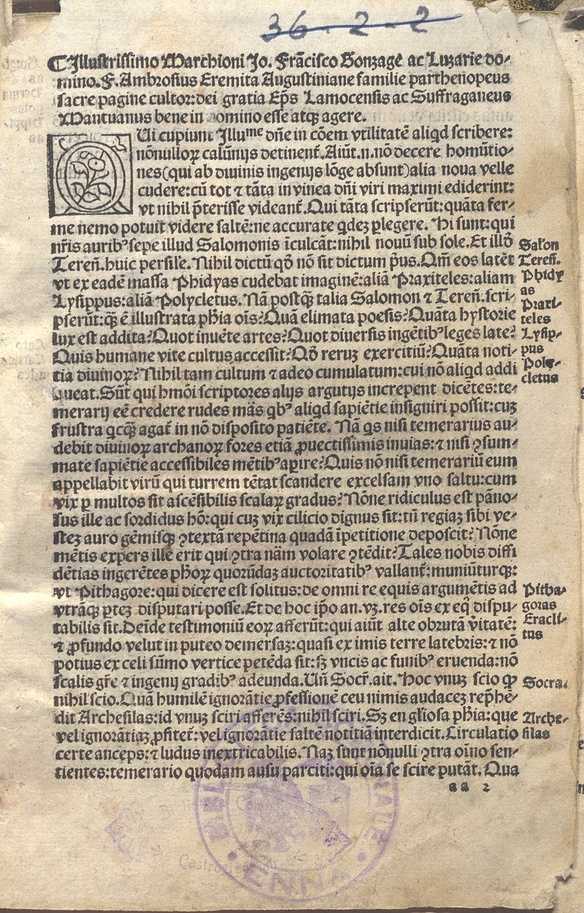 36-2-2
¶ Illustrissimo Marchioni Jo. Frācisco Gonzagę ac Luzarie do-
mino. F. Ambrosius Eremita Augustiniane familie parthenopeus
sacre pagine cultor: dei gratia Ep̄s Lamocensis ac Suffraganeus
Mantuanus bene in domino esse atqȝ agere.
QUi cupiunt Illu͞me dn̄e in cōem vtilitatē aliqd scribere:
nōnulloꝝ calūnijs detinent̄. Aiūt .n. nō decere homūtio-
nes (qui ab diuinis ingenijs lōge absunt) alia noua velle
cudere: cū tot & tāta in vinea dn̄i viri maximi ediderint:
vt nihil p̄terisse videant̄. Qui tāta scripserūt: quāta fer-
me nemo potuit videre saltē: ne accurate qdeȝ plegere. Hi sunt: qui
nr̄is auribꝰ sepe illud Salomonis īculcāt: nihil nouū sub sole. Et illō
Tereñ. huic persile. Nihil dictū qō nō sit dictum p̄us. Om̄ eos latēt
vt ex eadē massa Phidyas cudebat imaginē: aliā Praxiteles: aliam
Lysippus: aliā Polycletus. Nā postq̄ talia Salomon & Tereñ. scri-
pserūt: q̄ ē illustrata ph̄ia oīs? Quā elimata poesis? Quāta hystorie
lux est addita? Quot inuēte artes? Quot diuersis ingētibꝰ leges late?
Quis humane vite cultus accessit? Qō reruȝ exercitiū? Quāta noti-
tia diuinoꝝ? Nihil tam cultum & adeo cumulatum: cui nō aliqd addi
queat. Sūt qui hmōi scriptores alijs argutijs increpent dicētes: te-
merarij eē credere rudes māꝰ qbꝰ aliqd sapiētie insigniri possit: cuȝ
frustra qcq̄ agat̄ in nō disposito patiēte. Nā qs nisi temerarius au-
debit diuinoꝝ archanoꝝ fores etiā ꝓuectissimis inuias: & nisi ꝯsum-
mate sapiētie accessibiles mētibꝰ apire? Quis nō nisi temerariū eum
appellabit virū qui turrem tētat scandere excelsam vno saltu: cum
vix ꝑ multos sit ascēsibilis scalaꝝ gradus? Nōne ridiculus est pāno-
sus ille ac sordidus hō: qui cuȝ vix cilicio dignus sit: tn̄ regiaȝ sibi ve-
steȝ auro gēmisqȝ ꝯtextā repētina quadā īpetitione deposcit? Nōne
mētis expers ille erit qui ꝯtra nām volare ꝯtēdit? Tales nobis diffi
dētias ingerētes ph̄oꝝ quorūdaȝ auctoritatibꝰ vallant̄: muniūturqȝ:
vt Pithagore: qui dicere est solitus: de omni re equis argumētis ad
vtrāqȝ pteȝ disputari posse. Et de hoc ip̄o an .vȝ. res oīs ex eq̄ dispu-
tabilis sit. Deīde testimoniū eoꝝ afferūt: qui aiūt alte obrutā vitatē:
& ꝓfundo velut in puteo demersaȝ: quasi ex imis terre latebris: & nō
potius ex celi sūmo vertice petēda sit: sȝ vncis ac funibꝰ eruenda: nō
scalis gr̄e & ingenij gradibꝰ adeunda. Uñ Socr̄. ait. Hoc vnuȝ scio ꝙ
nihil scio. Quā humilē ignorātie ꝓfessionē ceu nimis audaceȝ rep̄hē-
dit Archesilas: id vnuȝ sciri afferēs: nihil sciri. Sȝ en gl̄iosa ph̄ia: que
vel ignorātiaȝ ꝓfitet̄: vel ignorātie saltē notitiā interdicit. Circulatio
certe anceps: & ludus inextricabilis. Naȝ sunt nōnulli ꝯtra oīno sen-
tientes: temerario quodam ausu parciti: qui oīa se scire putāt. Qua
aa 2
Salōn
Tereñ.
Phidy
as
Praxi-
teles
Lysip-
pus
Poly-
cletus
Pitha-
goras
Eracli-
tus
Socra.
Arche-
silas
ENNA